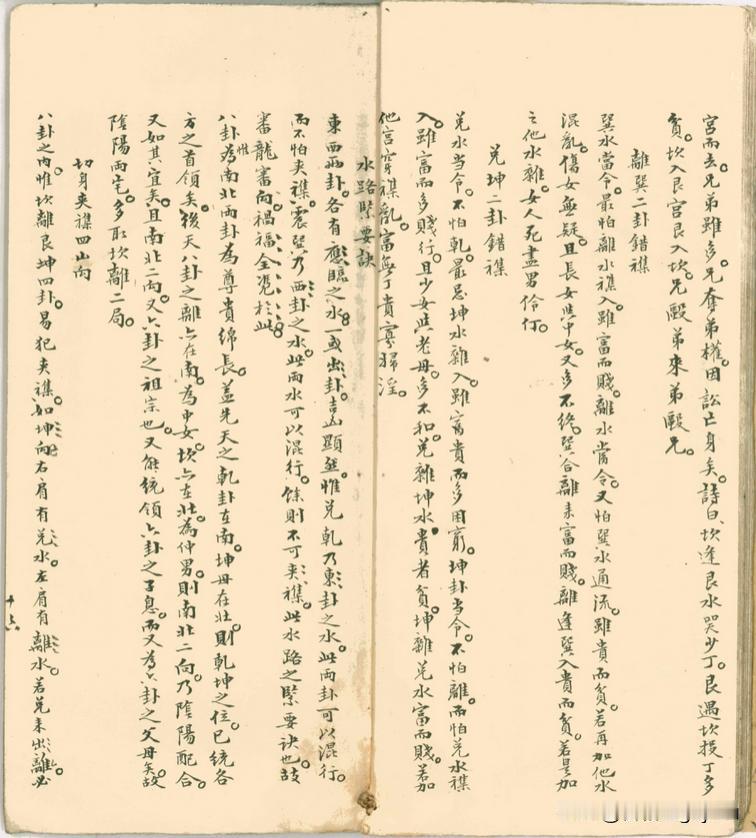 宮而去。兄弟雖多。兄奪弟權。因訟亡身矣。詩曰、坎逢艮水哭少丁。艮遇坎授丁多
貧。坎入艮宮艮入坎。兄毆弟來弟毆兄。
離巽二卦錯襍
巽水當令。最怕離水襍入。雖富而賤。離水當令。又怕巽水通流。雖貴而貧。若再加他水
混亂。傷女無疑。且長女與中女。又多不終。巽合離來富而賤。離逢巽入貴而貧。若是加
之他水雜。女人死盡男伶仃。
兌坤二卦錯襍
兌水當令。不怕乾。最忌坤水雜入。雖富貴而多困窮。坤卦當令。不怕離。而怕兌水襍
入。雖富而多賤行。且少女與老母。多不和。兌雜坤水。貴者貧。坤雜兌水富而賤。若加
他宮穿襍亂。富無丁貴寡婦淫。
水路緊要訣
東西兩卦。各有應臨之水。一或出卦。吉凶顯然。惟兌乾乃東卦之水。此兩卦可以混行。
而不怕夾襍。震巽乃西卦之水。此兩水可以混行。餘則不可夾襍。此水路之緊要訣也。故
審龍審向。禍福全憑於此。
八卦惟為南北兩卦為尊貴綿長。蓋先天之乾卦在南。坤母在北。則乾坤之位。已統各
方之首領矣。後天八卦之離六在南。為中女。坎六在北。為仲男。則南北二向。乃陰陽配合。
又如其宜矣。且南北二向。又六卦之祖宗也。又能統領六卦之子息。而又為六卦之父母矣。故
陰陽兩宅。多取坎離二局。
切身夾襍四山向
八卦之內。惟坎離艮坤四卦。易犯夾襍。如坤向右肩有兌水。左肩有離水。若兌來出離。必
十六